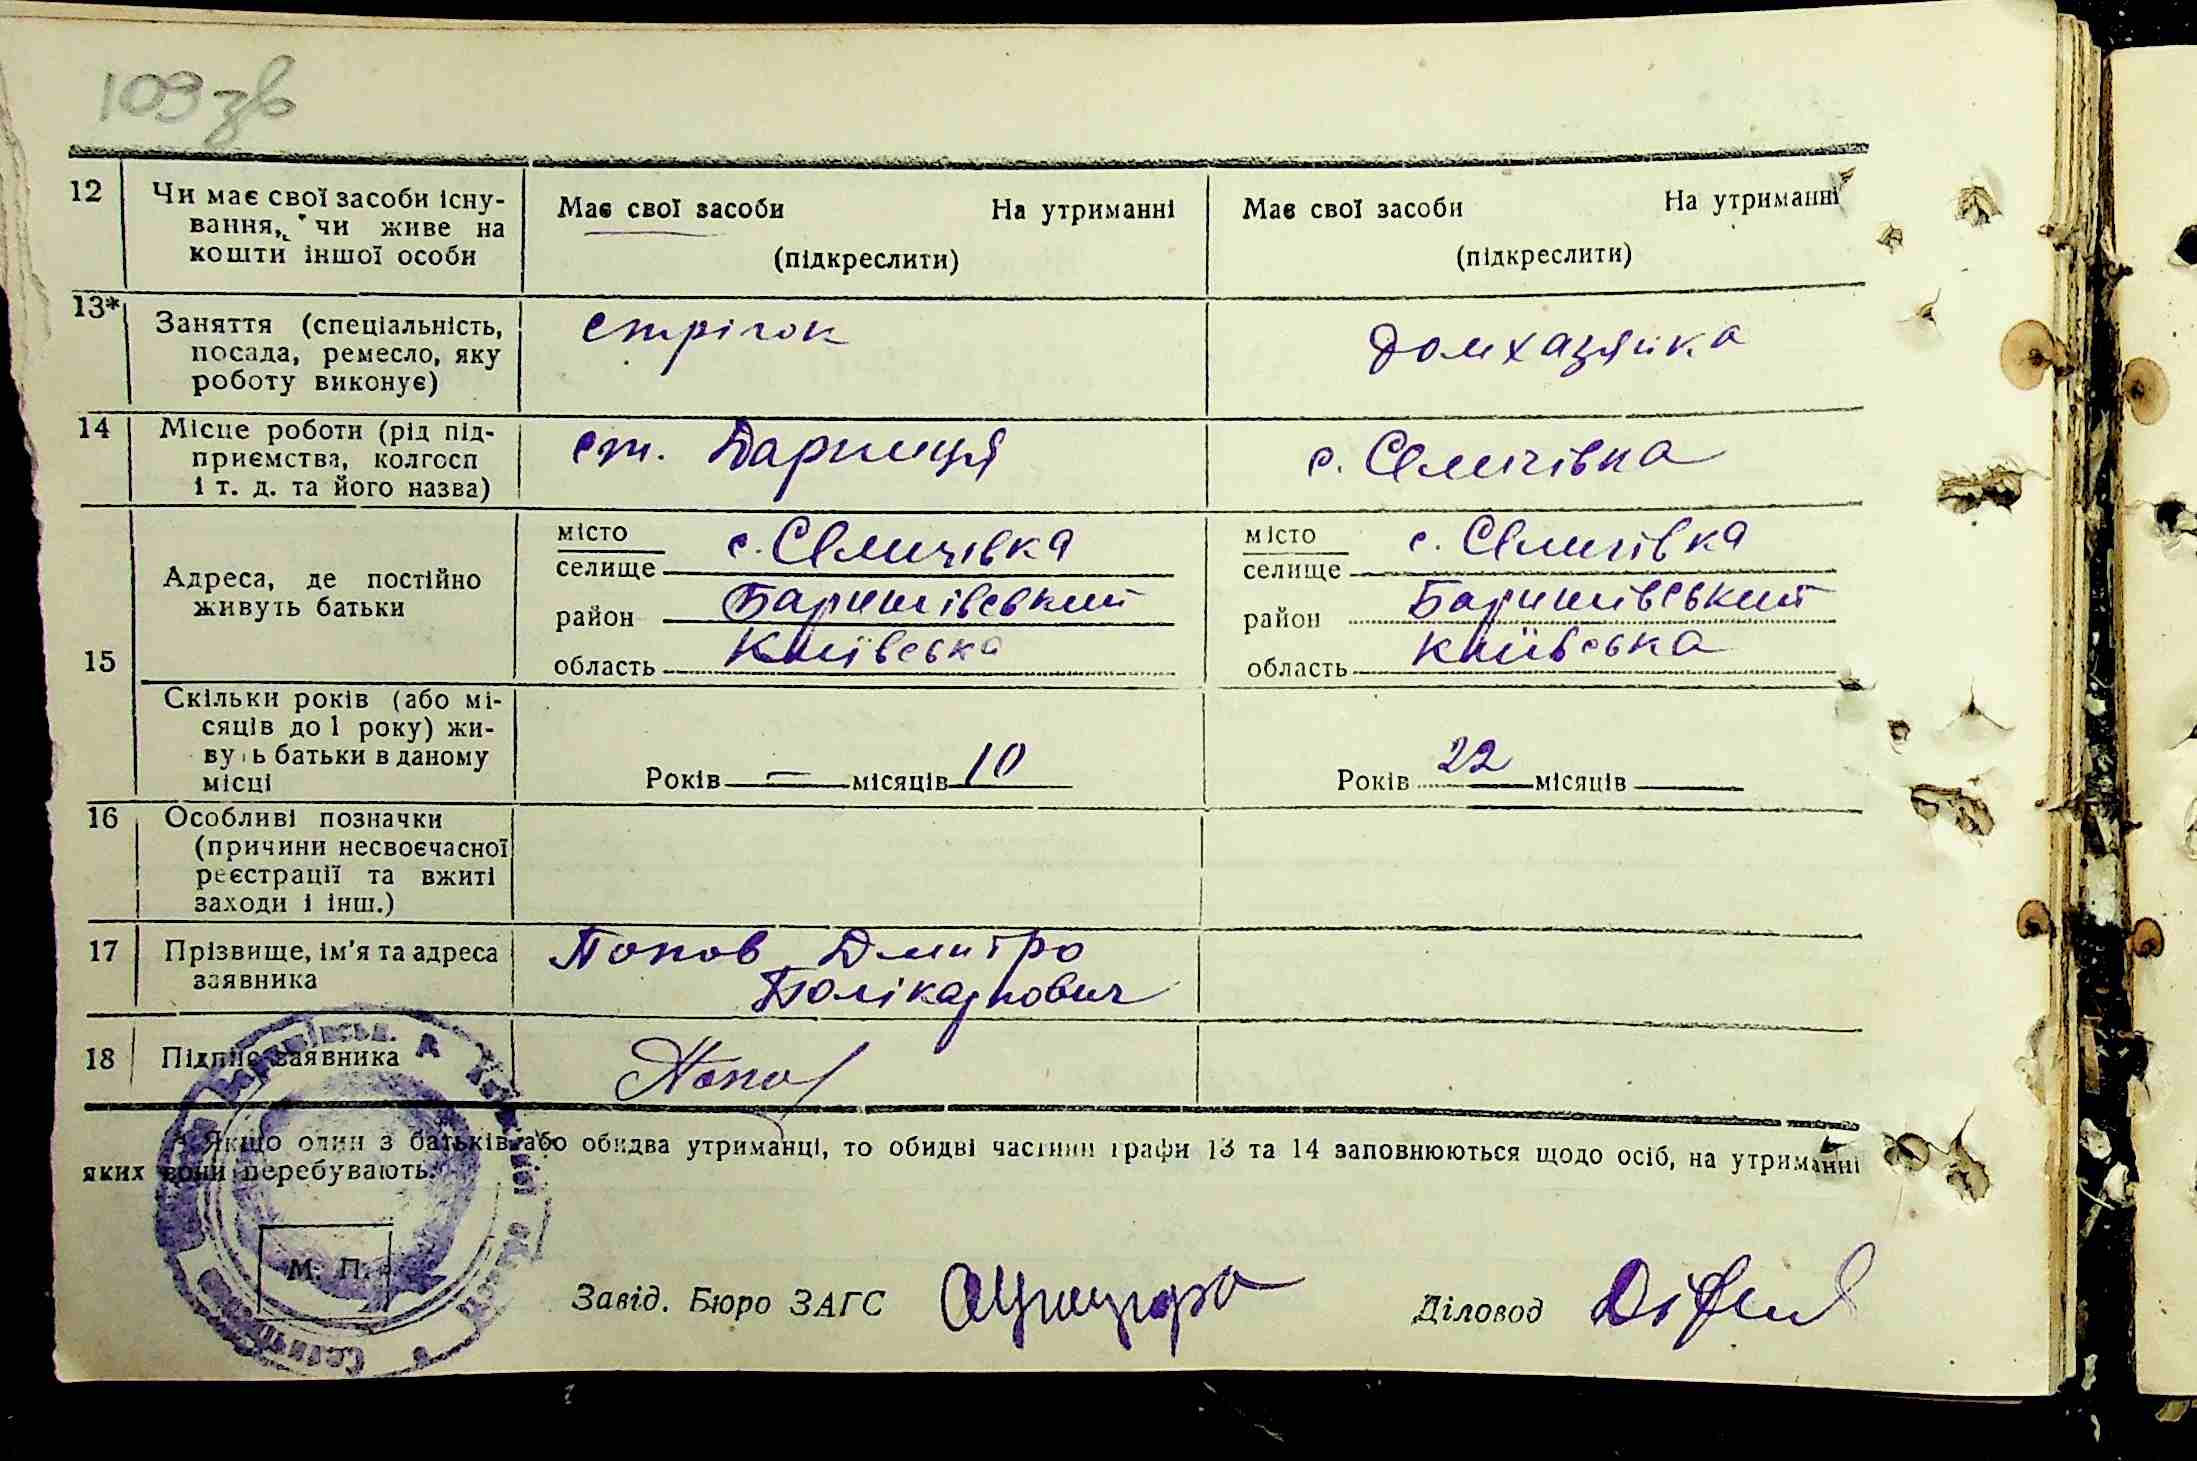 109 зв
12 Чи має свої засоби існу-
вання, чи живе на
кошти іншої особи
Має свої засоби На утриманні
(підкреслити)
Має свої засоби На утриманні
(підкреслити)
13* Заняття (спеціальність,
посада, ремесло, яку
роботу виконує)
стрілок
домхазяйка
14 Місце роботи (рід під-
приємства, колгосп
і т. д. та його назва)
ст. Дарниця
с. Селичівка
15 Адреса, де постійно
живуть батьки
місто
селище с. Селичівка
район Баришівський
область Київська
місто
селище с. Селичівка
район Баришівський
область Київська
Скільки років (або мі-
сяців до 1 року) жи-
вуть батьки в даному
місці
Років — місяців 10
Років 22 місяців
16 Особливі позначки
(причини несвоєчасної
реєстрації та вжиті
заходи і інш.)
17 Прізвище, ім'я та адреса
заявника
Попов Дмитро
Полікарпович
18 Підпис заявника
Попов
* Якщо один з батьків або обидва утриманці, то обидві частини графи 13 та 14 заповнюються щодо осіб, на утриманні
яких вони перебувають.
М. П.
Завід. Бюро ЗАГС
Діловод